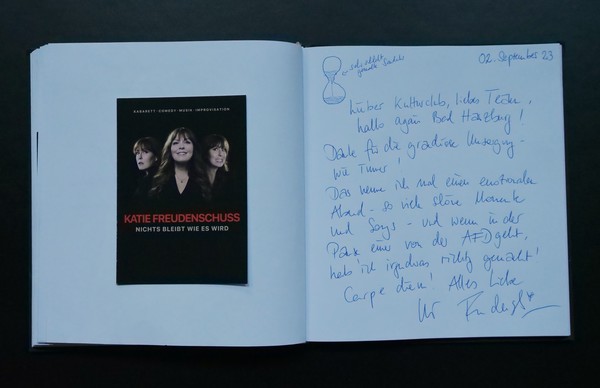 KABARETT · COMEDY · MUSIK · IMPROVISATION
KATIE FREUDENSCHUSS
NICHTS BLEIBT WIE ES WIRD
02. September 23
Lieber Kulturclub, liebes Team,
hallo again Bad Harzburg!
Danke für die grandiose Umsorgung -
wie immer!
Das nenne ich mal einen emotionalen
Abend - so viele schöne Momente
und Songs - und wenn in der
Pause einer von der AFD geht,
hab' ich irgendwas richtig gemacht!
Carpe diem! Alles Liebe